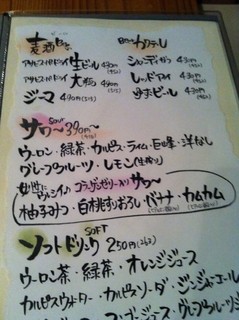 麦酒 ビール
アサヒスーパードライ 生ビール 430円
アサヒスーパードライ 大瓶
ジーマ 490円
ビールカクテル
シャンディガフ 430円
レッドアイ 430円
ゆずビール 430円
サワー SOUR 390円〜
ウーロン・緑茶・カルピス・ライム・巨峰・洋なし
グレープフルーツ・レモン(生搾り)
女性にウレシイ コラーゲンゼリー入り サワー
柚子みつ・白桃すりおろし・バナナ・カムカム
ソフトドリンク SOFT 250円
ウーロン茶・緑茶・オレンジジュース
カルピスウォーター・カルピスソーダ・ジンジャエール
コーラ